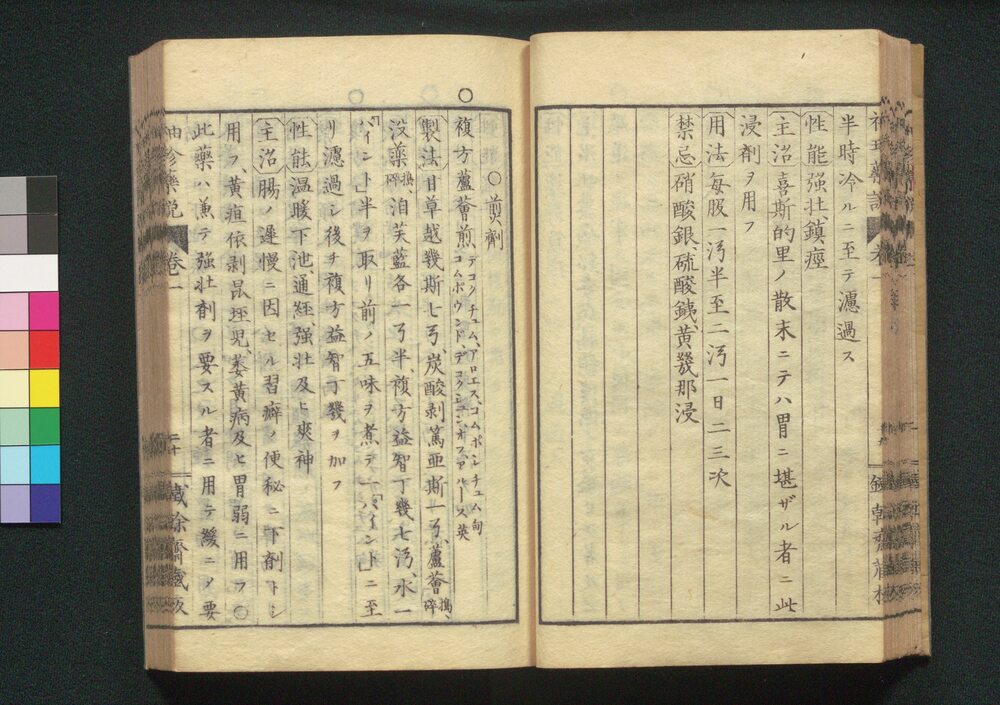 半時冷ルニ至テ濾過ス
性能 強壮、鎮痙
主治 喜斯的里ノ散末ニテハ胃ニ堪ザル者ニ此
浸剤ヲ用フ
用法 毎服一汅半至二汅一日二三次
禁忌 硝酸銀、硫酸銕、黄幾那浸
○煎剤
○複方蘆薈煎 デコクチュム、アロエス、コムポシチュム 甸
コムポウンド、デコクシヨン、オフ、アルース 英
製法 甘草越幾斯七丂炭酸剥篤亜斯一丂、蘆薈 搗、碎
没薬 搗、碎 洎芙藍各一丂半、複方益智丁幾七汅、水一
「パイント」半ヲ取リ前ノ五味ヲ煮テ一「パイント」ニ至
リ濾過シ後チ複方益智丁幾ヲ加フ
性能 温暖下池、通経、強壮及ヒ爽神
主治 腸ノ遅慢ニ因セル習癖ノ便秘ニ下剤トシ
用フ、黄疸依剥昆垤児、萎黄病及ヒ胃弱ニ用フ○
此薬ハ兼テ強壮剤ヲ要スル者ニ用テ緩ニノ要
袖珍薬説 巻一
二十